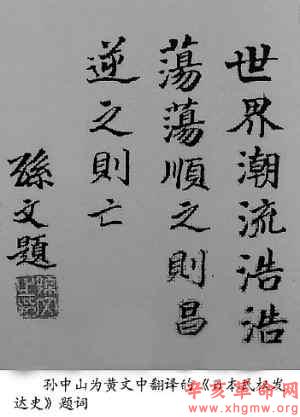 世界潮流浩浩
蕩蕩順之則昌
逆之則亡
孫文題
孙中山为黄文中翻译的《日本民权发
达史》题词
辛亥革命网
www.xhgmw.org